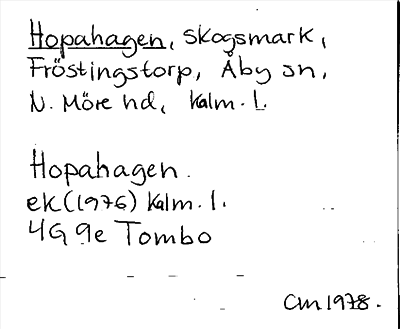 Hopahagen, skogsmark,
Fröstingstorp, Åby sn,
N. Möre hd, Kalm. l.
Hopahagen.
ek (1976) Kalm. l.
4G 9e Tombo
Cm 1978.